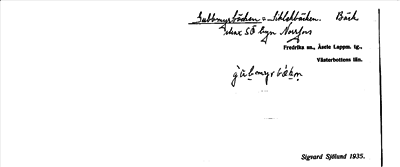 Gubbmyrbäcken = Siklabäcken. Bäck
SÖ byn Norrfors
Fredrika sn., Åsele Lappm. tg.,
Västerbottens län.
Sigvard Sjölund 1935.